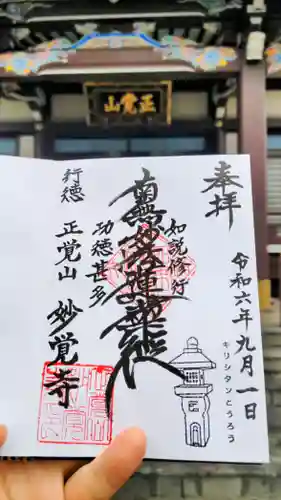 正覚山
奉拝
令和六年九月一日
キリシタンとうろう
如説修行
南無妙法蓮華経
功徳甚多
行徳
正覚山
妙覚寺